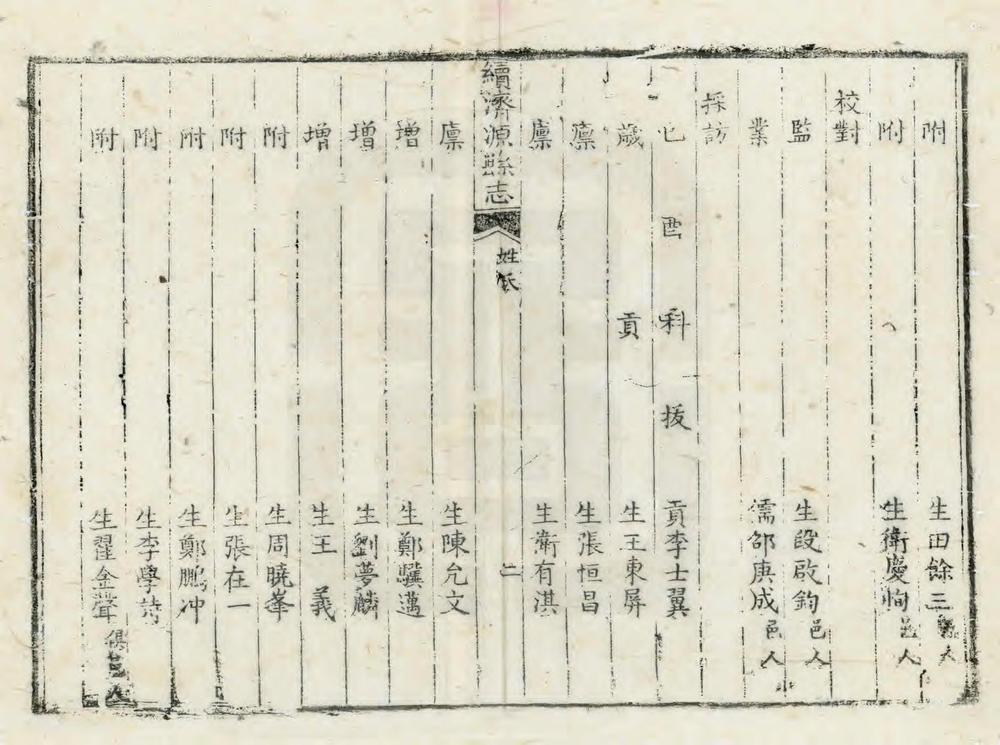 附生田餘三邑人
附生衛慶恂邑人
校對
監生段啟鈞邑人
業儒邵庚成邑人
採訪
己酉科拔貢李士翼
歲貢生王東屏
廩生張恒昌
廩生衛有淇
續濟源縣志
姓氏
二
廩生陳允文
增生鄭驥邁
增生劉夢麟
增生王義
附生周曉峯
附生張在一
附生鄭鵬冲
附生李學詩
附生翟金聲俱邑人